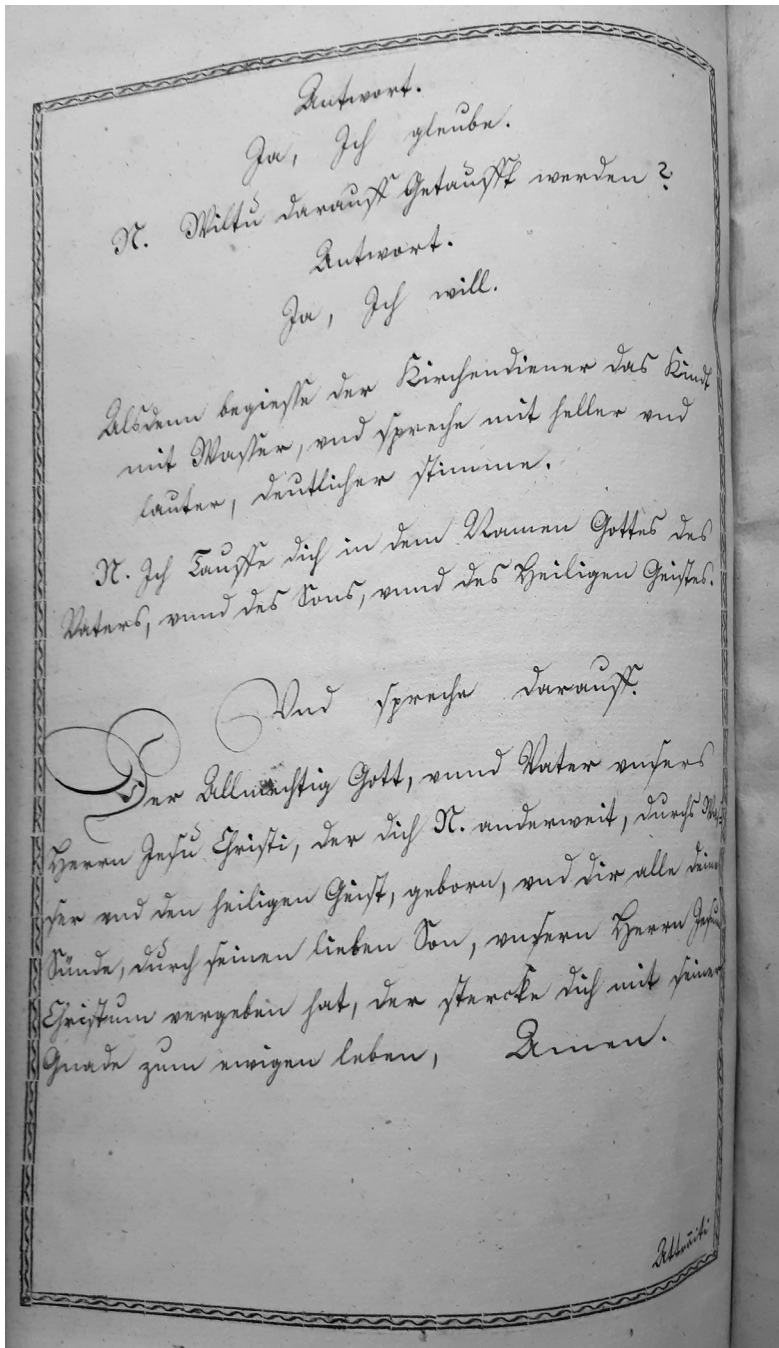 Antwort.
Ja, Ich gleube.
N. Wiltu darauff Getaufft werden?
Antwort.
Ja, Ich will.
Alsdenn begiesse der Kirchendiener das Kindt
mit Wasser, vnd spreche mit heller vnd
lauter, deutlicher stimme.
N. Ich Tauffe dich in dem Namen Gottes des
Vaters, vnnd des Sons, vnnd des Heiligen Geistes.
Vnd spreche darauff.
Der Allmechtig Gott, vnnd Vater vnsers
Herrn Jesu Christi, der dich N. anderweit, durchs Was-
ser vnd den heiligen Geist, geborn, vnd dir alle deine
Sünde, durch seinen lieben Son, vnsern Herrn Jesum
Christum vergeben hat, der stercke dich mit seiner
Gnade zum ewigen leben, Amen.